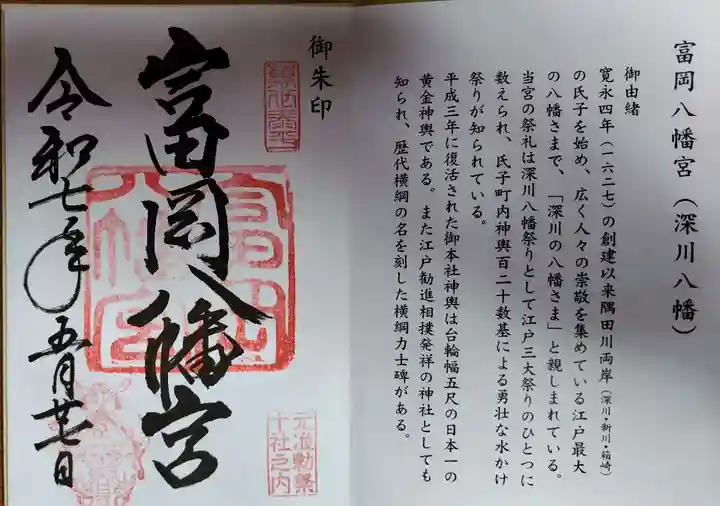 富岡八幡宮（深川八幡）
御由緒
寛永四年（一六二七）の創建以来隅田川両岸（深川・新川・箱崎）
の氏子を始め、広く人々の崇敬を集めている江戸最大
の八幡さまで、「深川の八幡さま」と親しまれている。
当宮の祭礼は深川八幡祭りとして江戸三大祭りのひとつに
数えられ、氏子町内神輿百二十数基による勇壮な水かけ
祭りが知られている。
平成三年に復活された御本社神輿は台輪幅五尺の日本一の
黄金神輿である。また江戸勧進相撲発祥の神社としても
知られ、歴代横綱の名を刻した横綱力士碑がある。
御朱印
富岡八幡宮
元准勅祭
十社之内
令和七年五月廿七日